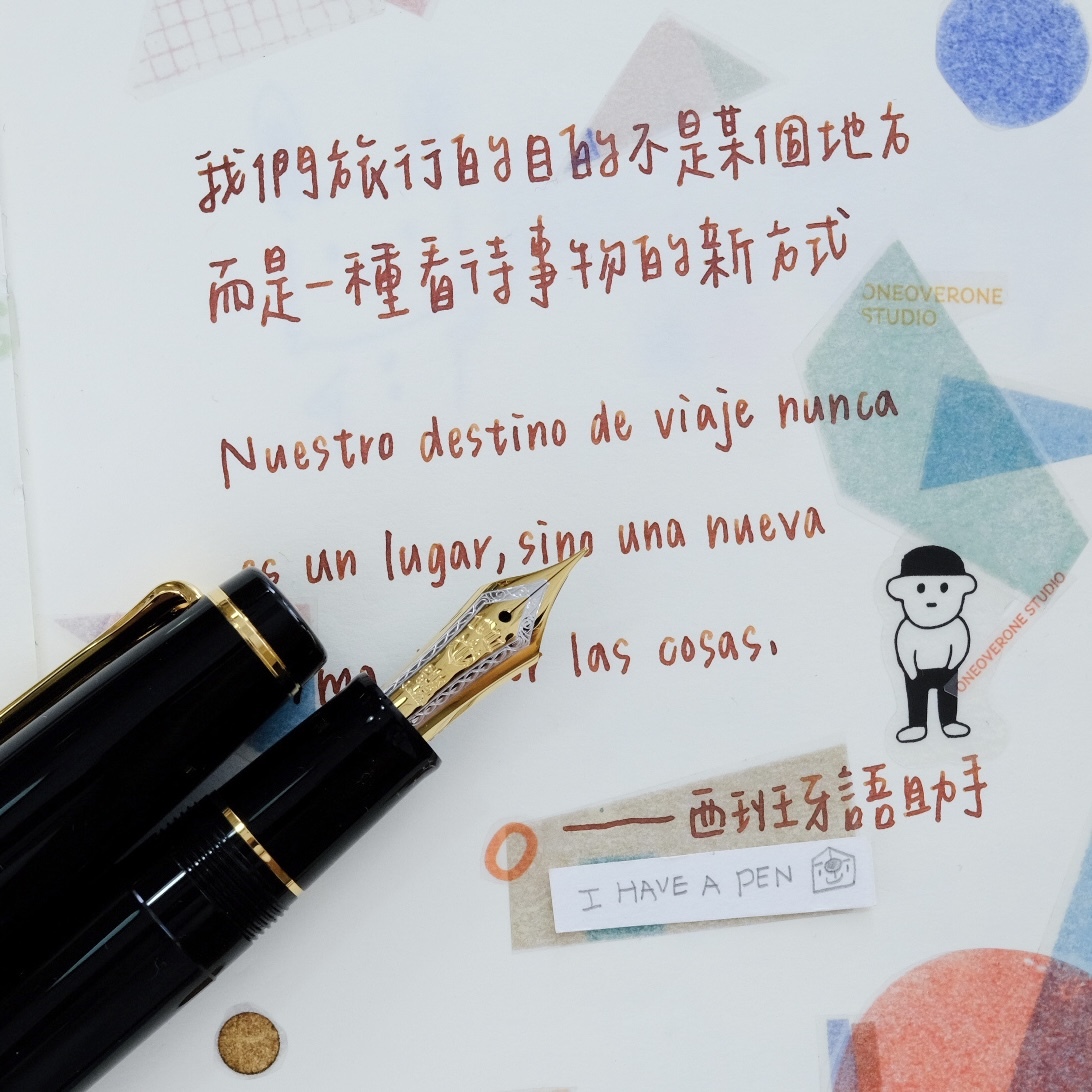 我們旅行的目的不是某個地方
而是一種看待事物的新方式
ONEOVERONE
STUDIO
Nuestro destino de viaje nunca
es un lugar, sino una nueva
las cosas.
ONEOVERONE STUDIO
—— 西班牙語助手
I HAVE A PEN